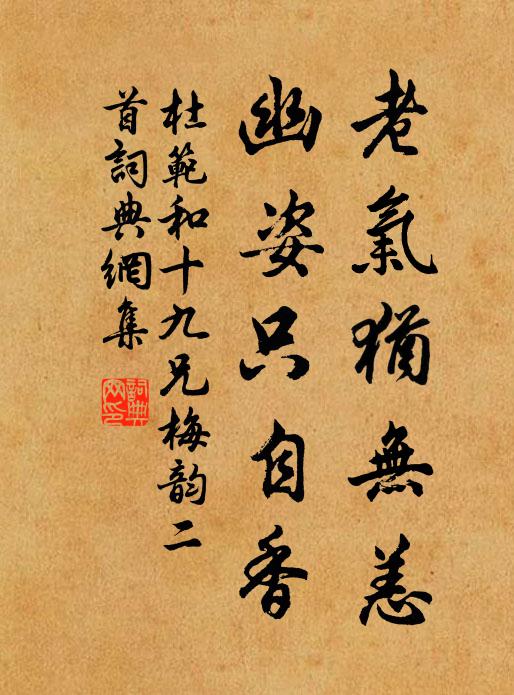 老氣猶無恙
幽姿只自香
杜範和十九兄梅韵二
首詞典網集
詞典網印